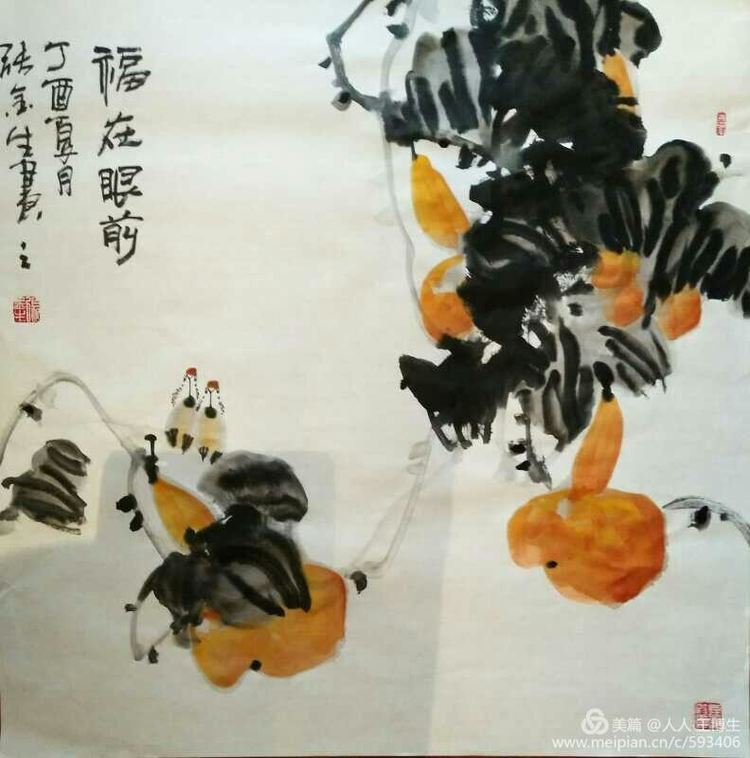 福在眼前
丁酉夏月
张金生畫之
美篇 @人人·王搏生
www.meipian.cn/c/593406